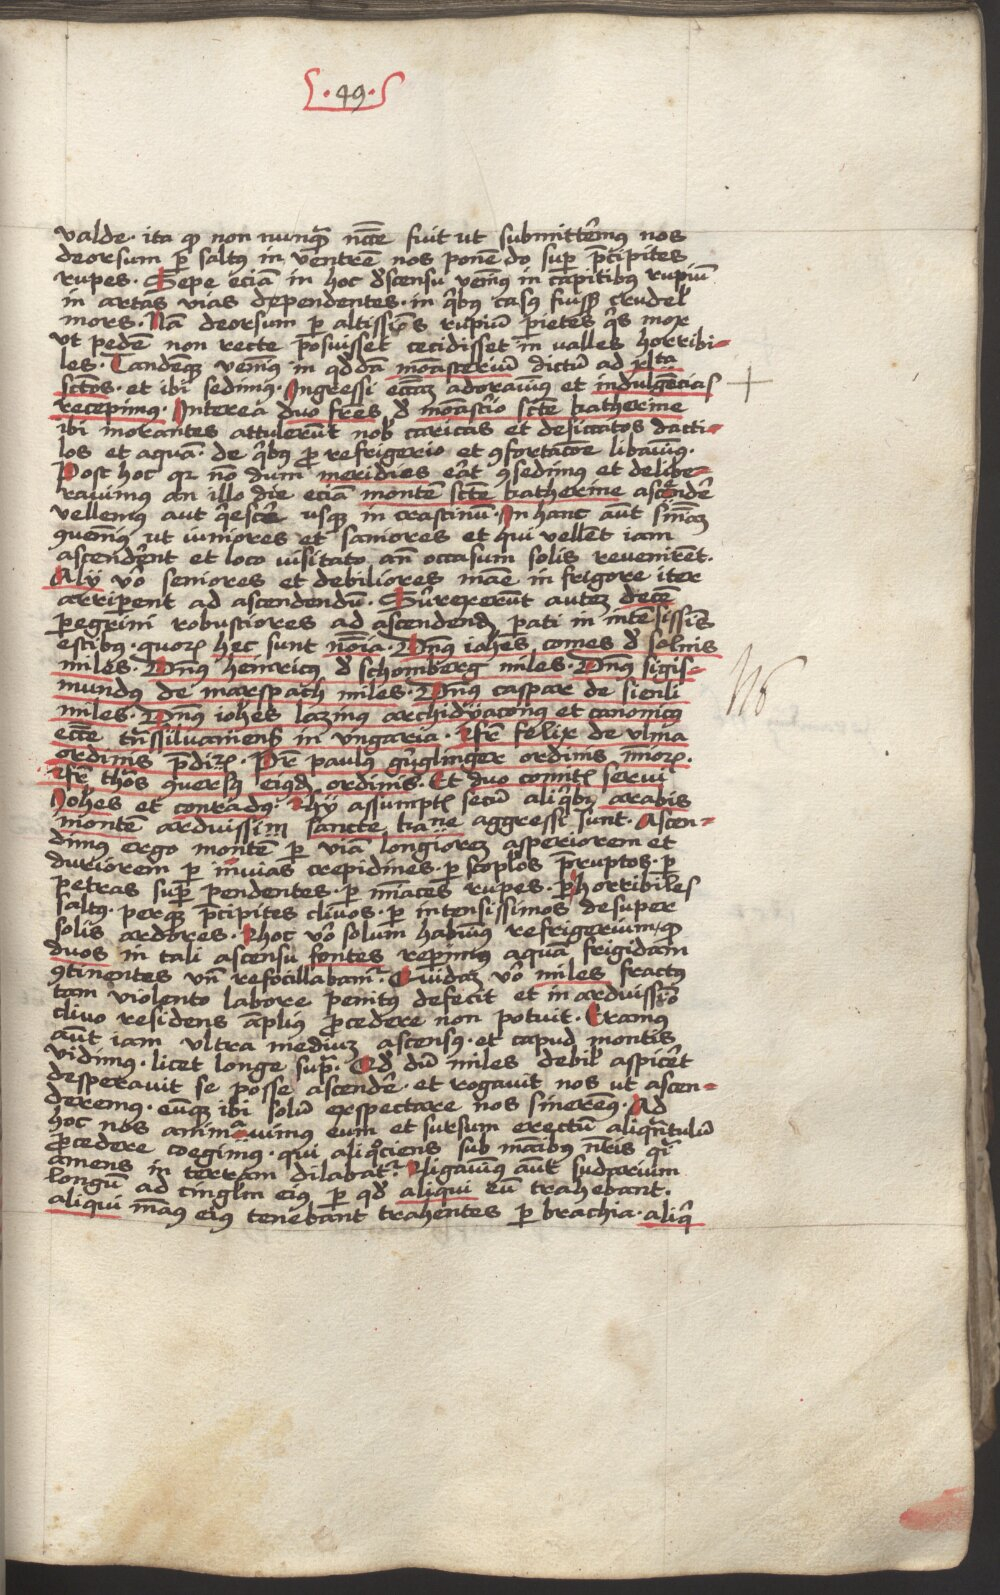 .49.
valde. ita ꝙ non nunqᷓ nc̄ce fuit ut submittem̄ꝯ nos
deorsum ꝑ saltꝯ in ventrē nos ponēdo sup̄ p̄cipites
rupes. Sepe eciā in hoc d̄scensu vēimꝯ in capitibꝯ rupiū
in artas vias dependentes. in q̄bꝯ casꝯ fuissꝫ crudel̄
mors. Nā deorsum ꝑ altissīos rupiū ꝑietes q̄s mox
ut pedē non recte posuisset cecidisset in valles horribi=
les. Tandēqꝫ vēimꝯ in qd̄dā monasteriū dictū ad xl̄ta
sc̄tos. et ibi sedimꝯ. Ingressi ecc̄am adorauimꝯ et indulgēcias
recepimꝯ. Interea duo fr̄es d̄ monast̄io sc̄te katherine
ibi morantes attulerūt nob̄ caricas et desiccatos dacti=
los et aquā. de q̄bꝯ ꝓ refrigerio et ꝯfortacōe libauimꝯ.
Post hoc qꝛ nō dum meridies eāt ꝯsedimꝯ et delibe=
rauimus an illo die eciā montē sc̄te katherine ascendē
vellemꝯ aut q̄escē usqꝫ in crastinū. In hanc aūt sn̄iaꝫ
ꝯuenimꝯ ut iuniores et saniores et qui vellēt iam
ascenderēt et loco visitato an̄ occasum solis revenirēt.
Alij v̄o seniores et debiliores māe in frigore iter
arriꝑent ad ascendendū. Surexerūt auteꝫ decē
ꝑegrini robustiores ad ascendendꝫ ꝑati in intēsissīs
estibꝯ. quoꝝ hec sunt nōia. Dn̄ꝯ ioh̄es comes d̄ solmis
miles. Dn̄ꝯ heinricꝯ d̄ schomberg miles. Dn̄ꝯ sigis=
mundꝯ de marspach miles. Dn̄ꝯ caspar de sienli
miles. Dn̄ꝯ ioh̄es lazinus archidyaconꝯ et canonicꝯ
ecc̄e trn̄ssiluaniens̄ in vngaria. Fr̄ felix de vlma
ordinis p̄dicꝝ. Pr̄ paulus guglinger ordinis mīoꝝ.
Fr̄ tho᷒s querfꝯ eiꝯd̄ ordinis. Et duo comitꝫ servi
Ioh̄es et conradꝯ. Hij assumptꝫ secū aliq̄bꝯ arabis
montē arduissim sancte ka ne aggressi sunt. Ascen=
dimꝯ ergo montē ꝑ viā longioreꝫ asperiorem et
duriorem ꝑ invias crepidines. ꝑ scopl̄os p̄ruptos. ꝑ
petras suꝑ pendentes. ꝑ mīaces rupes. ꝑ horribiles
saltꝯ. perqꝫ p̄cipites clivos. ꝑ intensissimos desuper
solis ardores. Hoc v̄o solum habuimꝯ refrigerium. ꝙ
duos in tali ascensu fontes reꝑimꝯ aquā frigidam
ꝯtinentes vn̄ refocillabam̄. Quidaꝫ v̄o miles fractꝯ
tam violento labore penitꝯ defecit et in arduissīo
clivo residens āpliꝯ ꝓcedere non potuit. Eramꝯ
aūt iam vltra mediuꝫ ascensꝯ. et capud montis
vidimꝯ. licet longe sup̄. Qd̄ dū miles debil̄ aspicēt
desperauit se posse ascendē. et rogauit nos ut ascen=
deremꝯ. eūqꝫ ibi solū exspectare nos sineremꝯ. Ad
hoc nos animauimus eum et sursum erectū aliqᷓntulū
ꝓcedere coegimꝯ. qui aliqͦciens sub māibꝯ nr̄is q̄i
amens in terram dilabat᷑. Aligauimꝯ aūt sudarium
longū ad cingl̄m eiꝯ ꝑ qd̄ aliqui eū trahebant.
aliqui manꝯ eiꝯ tenebant trahentes ꝑ brachia. aliq̄